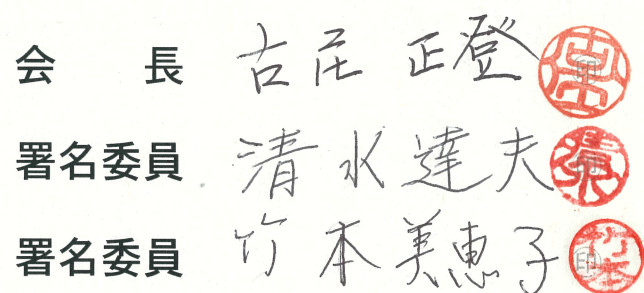 会 長 古庄 正登 印
署名委員 清水達夫 印
署名委員 竹本美恵子 印 竹本